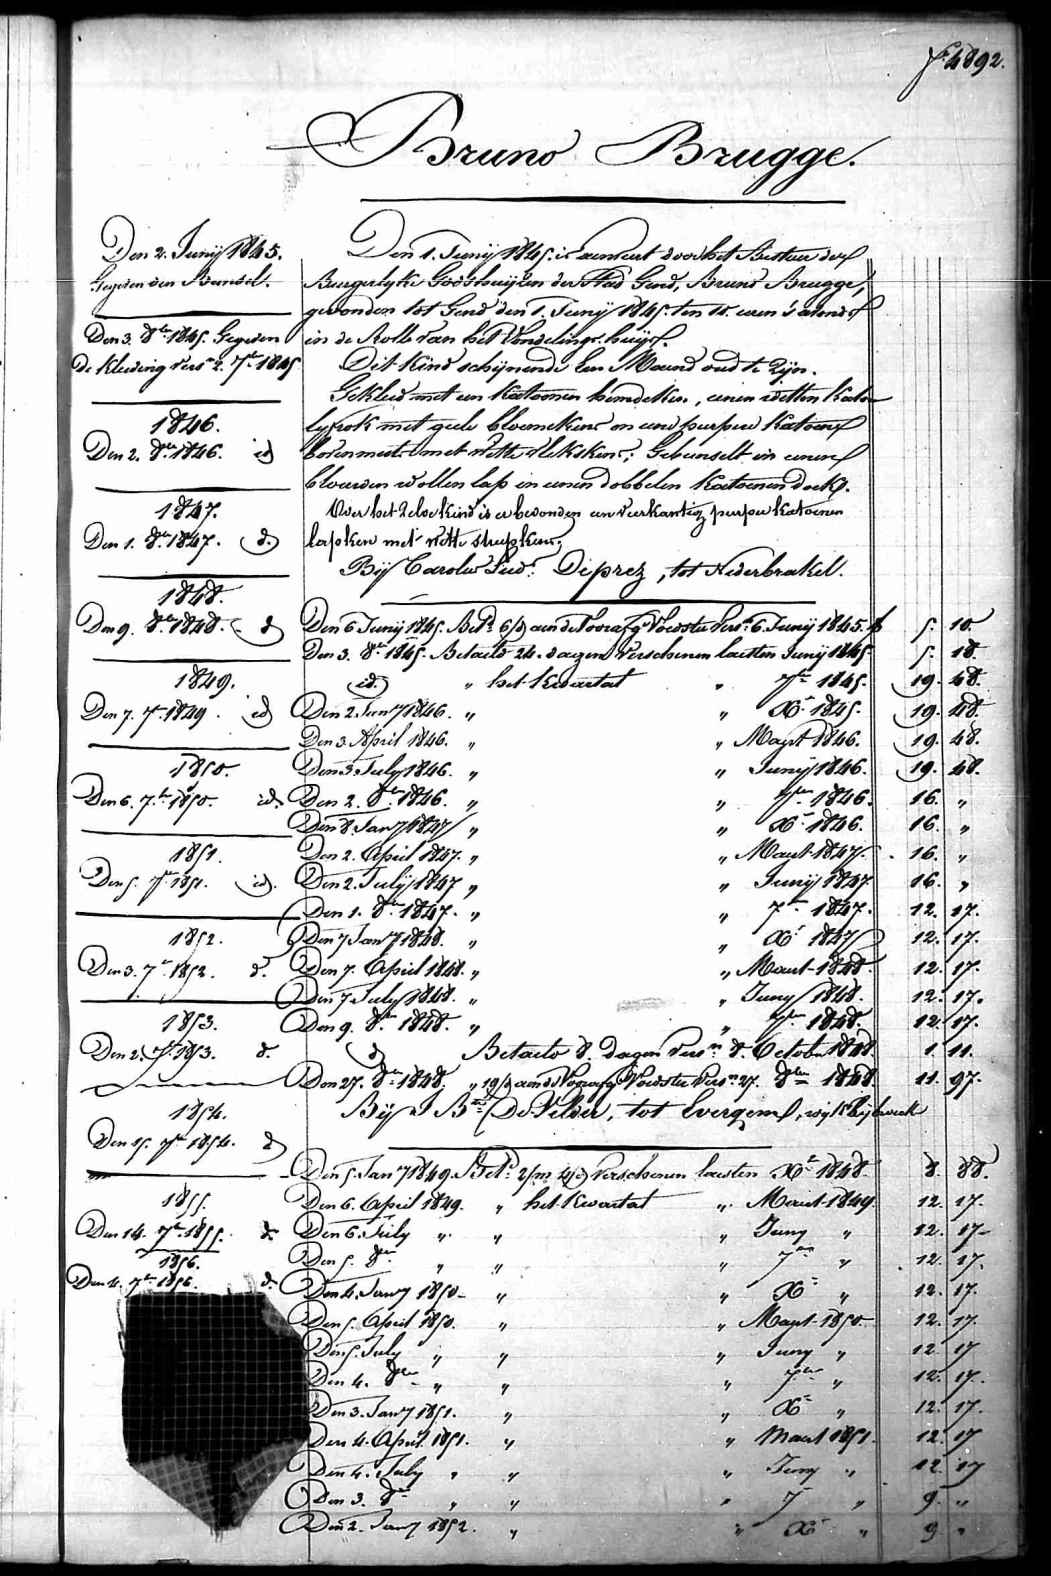 f° 4892.
Bruno Brugge.
Den 2. Junij 1845.
Gegeven den Bundel.
Den 3. 8ber 1845. Gegeven
de Kleeding vers. 2. 7ber 1845
1846.
Den 2. 8ber 1846. id
1847.
Den 1. 8ber 1847. d.
1848.
Den 9. 8ber 1848. d
1849.
Den 7. 7ber 1849. id
1850.
Den 6. 7ber 1850. id.
1851.
Den 5. 7ber 1851. id.
1852.
Den 3. 7ber 1852. d.
1853.
Den 2. 7ber 1853. d.
1854.
Den 15. 7ber 1854. d
1855.
Den 14. 7ber 1855. d.
1856.
Den 4. 7ber 1856. d.
Den 1. Junij 1845. is aenveert door het Bestuer der
Burgerlyke Godshuijzen der Stad Gend, Bruno Brugge,
gevonden tot Gend den 1. Junij 1845. ten 11. uren 's avonds
in de Rolle van het Vondelings-huijs.
Dit Kind schijnende Een Maend oud te Zijn.
Gekleed met een Katoenen hemdeken, eenen witten Katoe
lyfrok met geele bloemekens en eene purpere Katoene
bovenmuts met witte vlekskens; Gebunselt in eenen
blauwen wollen lap en eenen dobbelen Katoenen doek.
Over het Zelve kind is er bevonden een vierkantig purper katoenen
lapken met witte streepkens.
Bij Carolus Lud. Deprez, tot Nederbrakel.
Den 6 Junij 1845. Bet. 6/d aen de Voorafg. Voedster vers. 6. Junij 1845. f 5. 10.
Den 3. 8ber 1845. Betaeld 24. dagen Verschenen laetsten Junij 1845. 5. 18.
id. " het Kwartael " 7ber 1845. 19. 48.
Den 2. Janry 1846. " " Xber 1845. 19. 48.
Den 3. April 1846. " " Maert 1846. 19. 48.
Den 3. July 1846. " " Junij 1846. 19. 48.
Den 2. 8ber 1846. " " 7ber 1846. 16. "
Den 8. Janry 1847 " " Xber 1846. 16. "
Den 2. April 1847. " " Maert 1847. 16. "
Den 2. Julij 1847 " " Junij 1847. 16. "
Den 1. 8ber 1847. " " 7ber 1847. 12. 17.
Den 7 Janry 1848. " " Xber 1847 12. 17.
Den 7. April 1848. " " Maert 1848. 12. 17.
Den 7 July 1848. " " Juny 1848. 12. 17.
Den 9. 8ber 1848. " " 7ber 1848. 12. 17.
d Betaeld 8. dagen vers. 8. October 1848. 1. 11.
Den 27. 8ber 1848. " 19/d aen de Voorafg. Voedster vers. 27. 8ber 1848. 11. 97.
Bij J. Bte De Vilder, tot Evergem, wijk
Den 5. Janry 1849. Bet. 2/m 4/d Verschenen laetsten Xber 1848. 8. 88.
Den 6. April 1849. " het Kwartael " Maert 1849. 12. 17.
Den 6. July " " " Juny " 12. 17.
Den 5. 8ber " " " 7ber " 12. 17.
Den 4. Janry 1850. " " Xber " 12. 17.
Den 5. April 1850. " " Maert 1850. 12. 17.
Den 5. July " " " Juny " 12. 17
Den 4. 8ber " " " 7ber " 12. 17.
Den 3. Janry 1851. " " Xber " 12. 17.
Den 4. April 1851. " " Maert 1851. 12. 17
Den 4. July " " " Juny " 12. 17
Den 3. 8ber " " " 7 " 9. "
Den 2. Janry 1852. " " Xber " 9 "